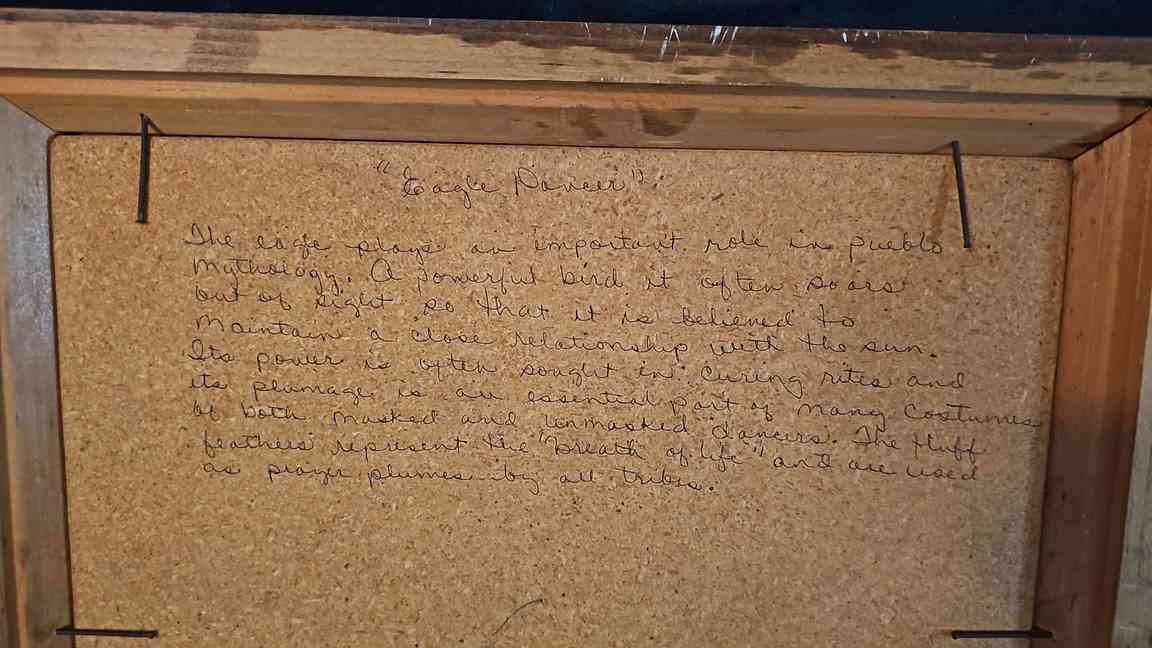 "Eagle Dancer"
The eagle plays an important role in pueblo
mythology. A powerful bird it often soars
out of sight so that it is believed to
maintain a close relationship with the sun.
Its power is often sought in curing rites and
its plumage is an essential part of many costumes
of both masked and unmasked dancers. The fluff
feathers represent the "breath of life" and are used
as prayer plumes by all tribes.